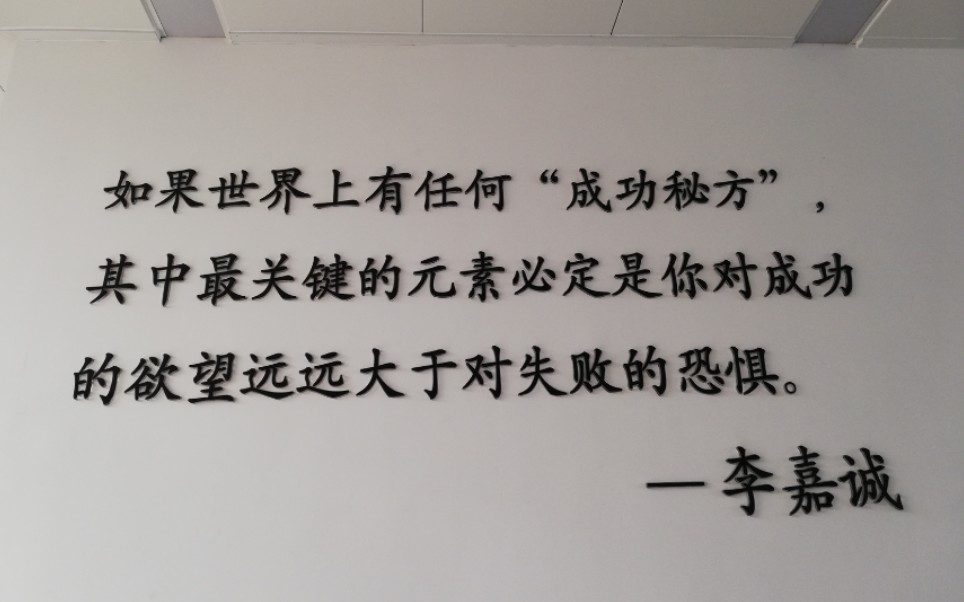 如果世界上有任何“成功秘方”,
其中最关键的元素必定是你对成功
的欲望远远大于对失败的恐惧。
—李嘉诚